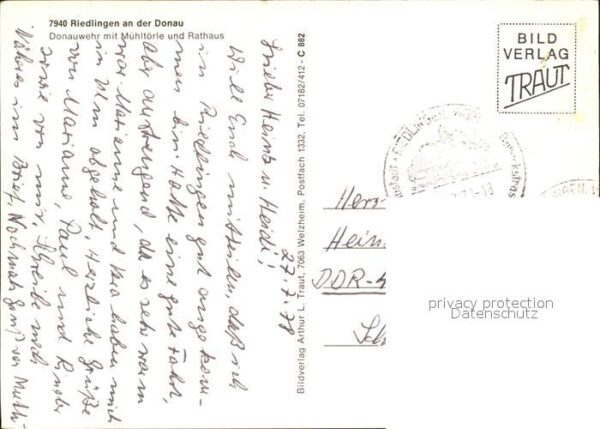 7940 Riedlingen an der Donau
Donauwehr mit Mühltörle und Rathaus
BILD
VERLAG
TRAUT
Bildverlag Arthur L. Traut, 7063 Welzheim, Postfach 1332, Tel. 07182/412 - C 882
27.7.78
Lieber Heinz u. Heidi!
Will Euch mitteilen, daß ich
in Riedlingen gut angekom-
men bin. Hatte eine gute Fahrt,
aber anstrengend, da es sehr warm
war. Marianne und haben mich
in Ulm abgeholt. Herzliche Grüße
von Marianne, Paul und Kinder
sowie von mir. Schreibe noch
Näheres im Brief. Nochmals Gruß von Mutti
Herr
Hein
DDR-4
Sch
privacy protection
Datenschutz